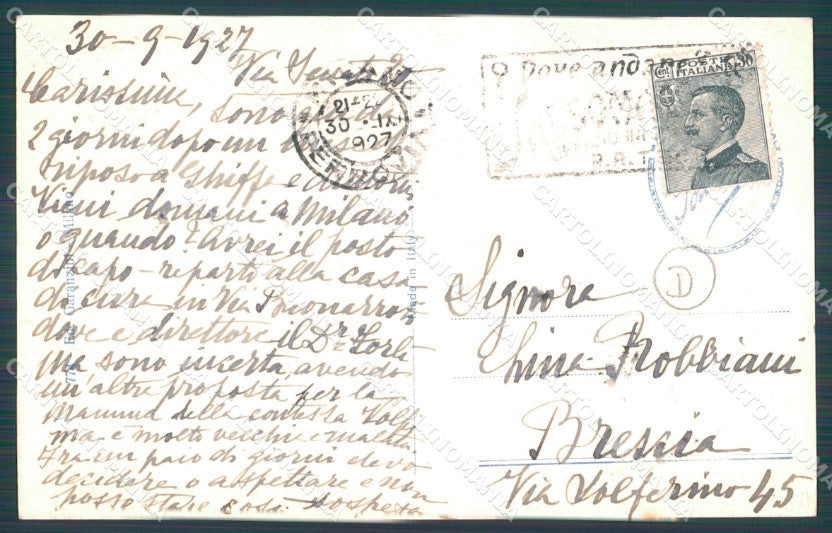 30-9-1927
Via Senato 20
Carissima, sono qui da
2 giorni dopo un mese di
riposo a Ghiffa e dintorni
Vieni domani a Milano
o quando? Avrei il posto
di capo-reparto alla casa
di cura in Via Buonarroti
dove è direttore il Dr. Forla
ma sono incerta, avendo
un'altra proposta per la
Mamma della contessa
ma è molto vecchia e malata
Fra un paio di giorni devo
decidere o aspettare e non
posso stare così sospesa
Made in Italy
Milano
30 IX
927
FERROVIA
O Dove andare
POSTE
ITALIANE
Cent 30
D
Signora
Lina Robbiani
Brescia
Via Solferino 45
CARTOLINOMANIA